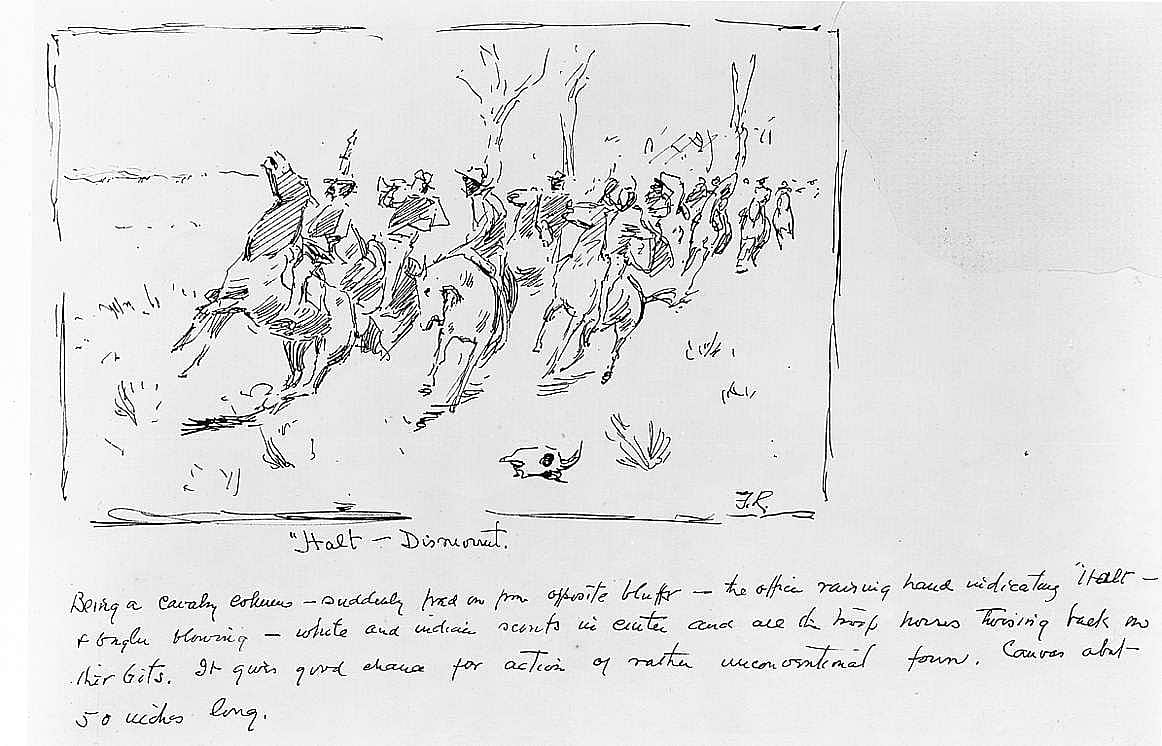 F.R.
"Halt – Dismount.
Being a cavalry column – suddenly fired on from opposite bluffs – the officer raising hand indicating "Halt –
& bugler blowing – white and indian scouts in center and all the troop horses throwing back on
their bits. It gives good chance for action of rather unconventional form. Canvas about
50 inches long.